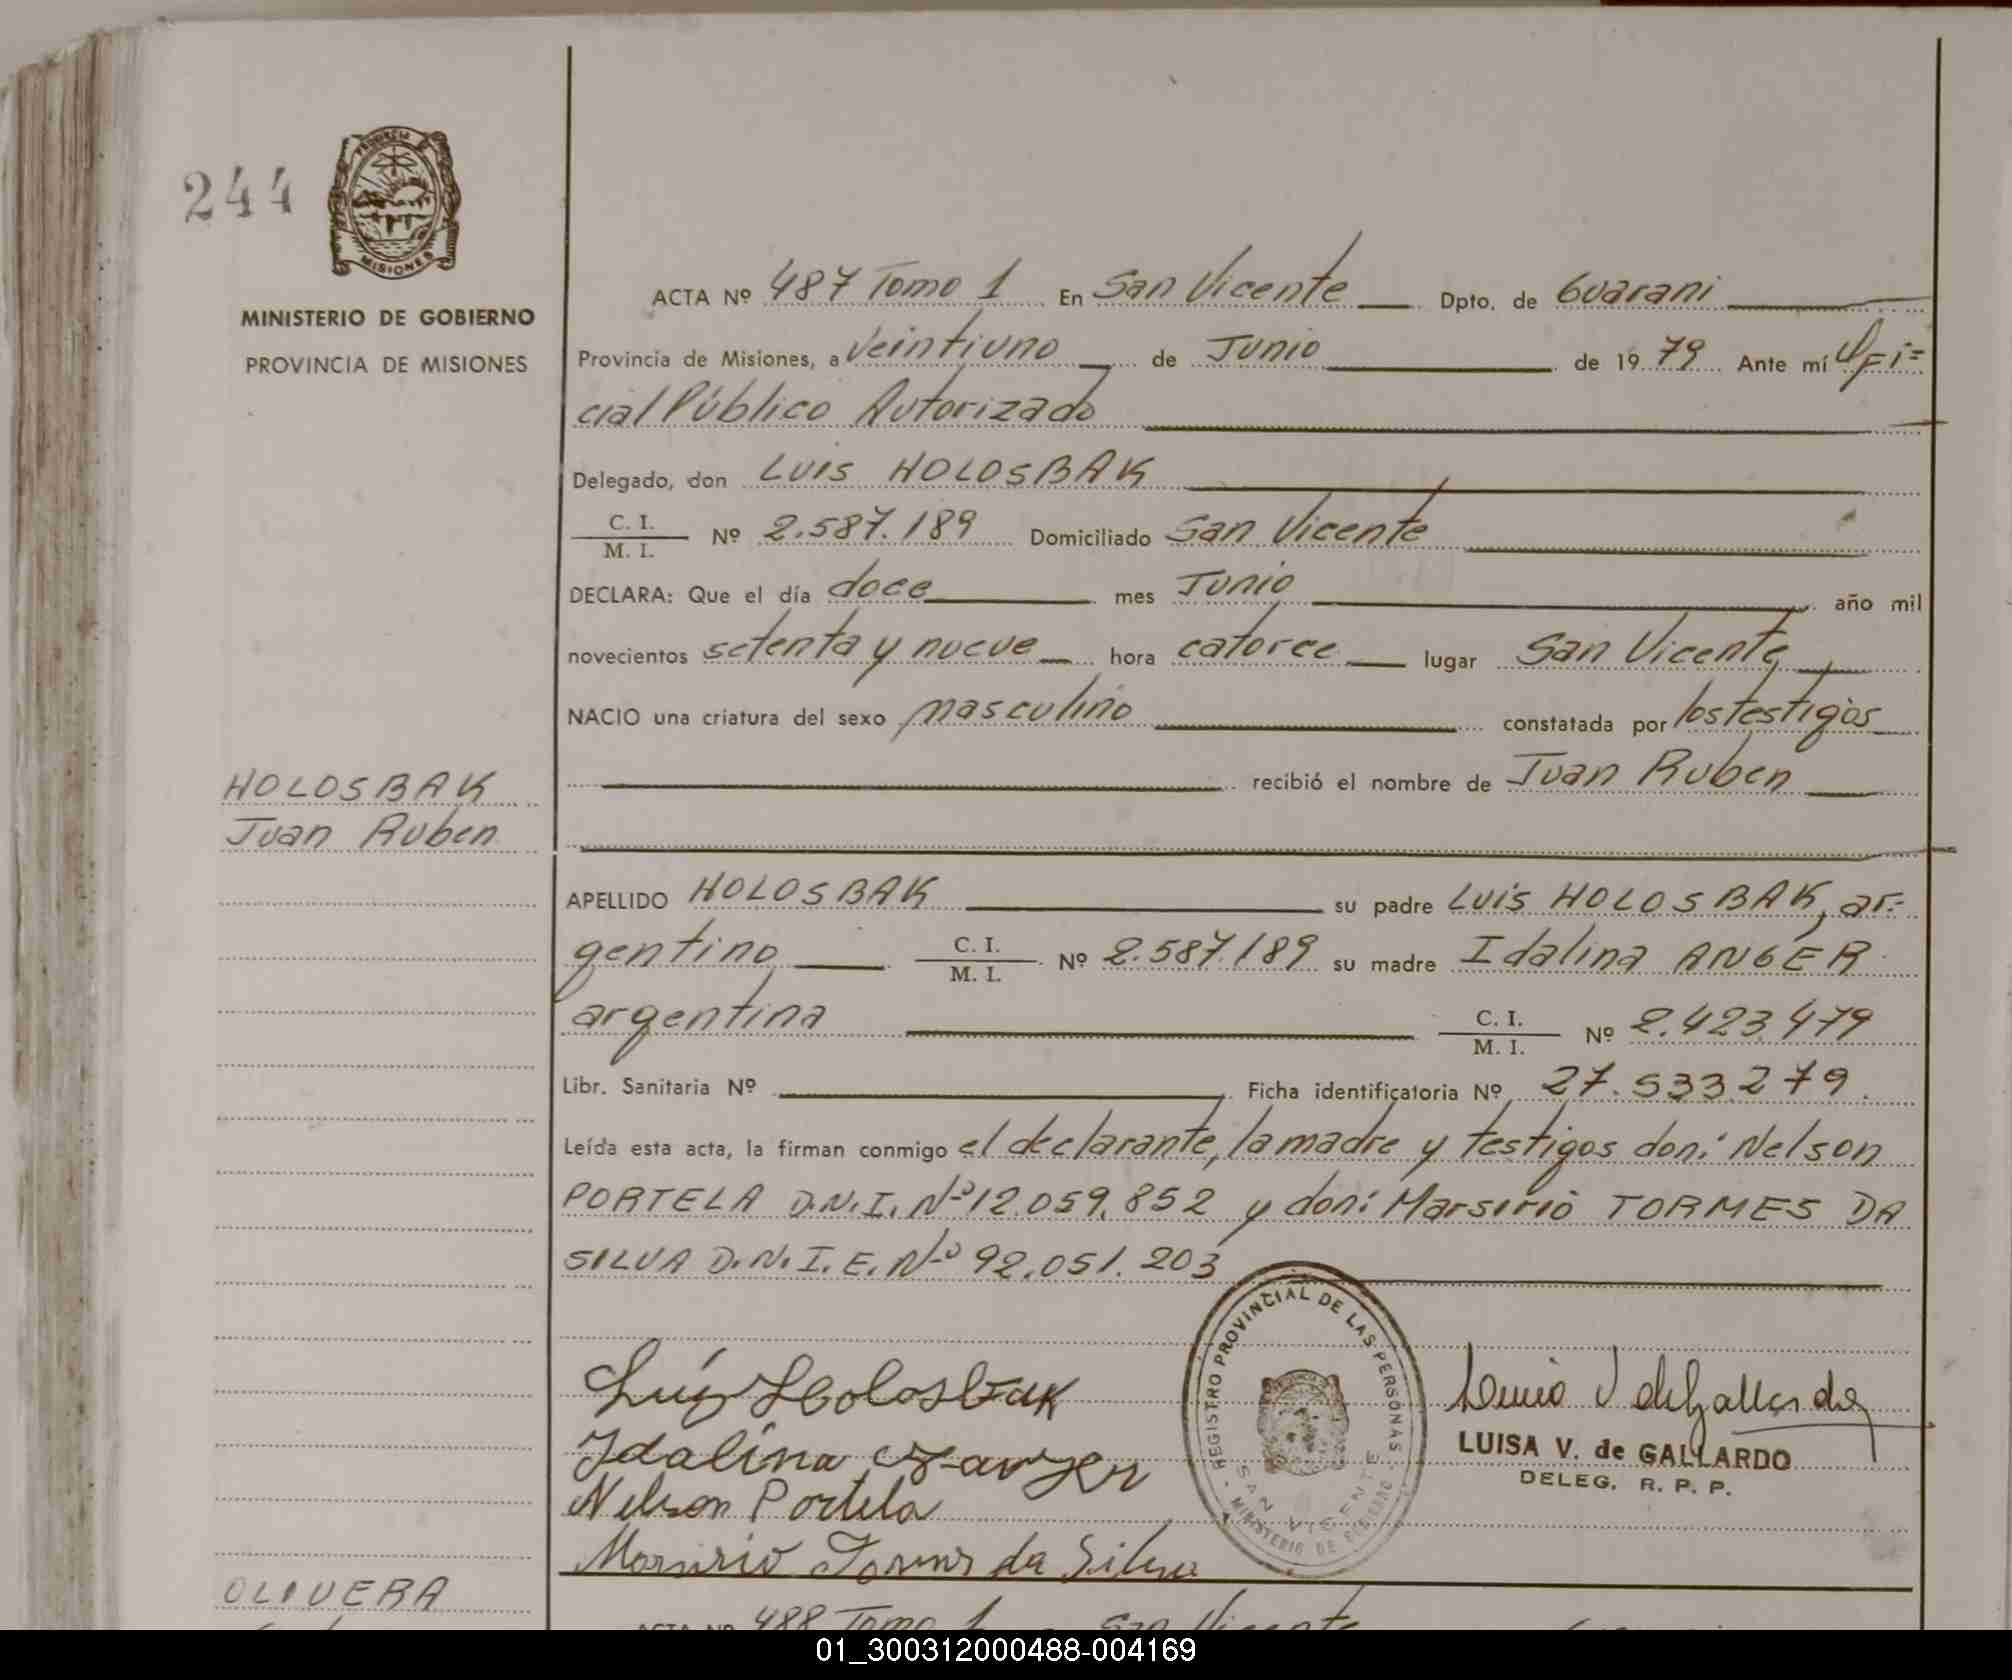 244
PROVINCIA
MISIONES
MINISTERIO DE GOBIERNO
PROVINCIA DE MISIONES
ACTA Nº 487 Tomo 1 En San Vicente Dpto. de Guarani
Provincia de Misiones, a Veintiuno de Junio de 19 79 Ante mí Ofi=
cial Público Autorizado
Delegado, don LUIS HOLOSBAK
C. I. / M. I. Nº 2.587.189 Domiciliado San Vicente
DECLARA: Que el día doce mes Junio año mil
novecientos setenta y nueve hora catorce lugar San Vicente
NACIO una criatura del sexo masculino constatada por los testigos
recibió el nombre de Juan Ruben
HOLOSBAK
Juan Ruben
APELLIDO HOLOSBAK su padre Luis HOLOSBAK, ar-
gentino C. I. / M. I. Nº 2.587.189 su madre Idalina ANGER
argentina C. I. / M. I. Nº 2.423.479
Libr. Sanitaria Nº Ficha identificatoria Nº 27.533.279.
Leída esta acta, la firman conmigo el declarante, la madre y testigos don: Nelson
PORTELA D.N.I. Nº 12.059.852 y don: Marsirio TORMES DA
SILVA D.N.I.E. Nº 92.051.203
Luis Holosbak
Idalina
Nelson Portela
da Silva
REGISTRO PROVINCIAL DE LAS PERSONAS
SAN VICENTE
MINISTERIO DE GOBIERNO
V de Gallardo
LUISA V. de GALLARDO
DELEG. R. P. P.
OLIVERA
ACTA Nº 488 Tomo 1 San Vicente
01_300312000488-004169